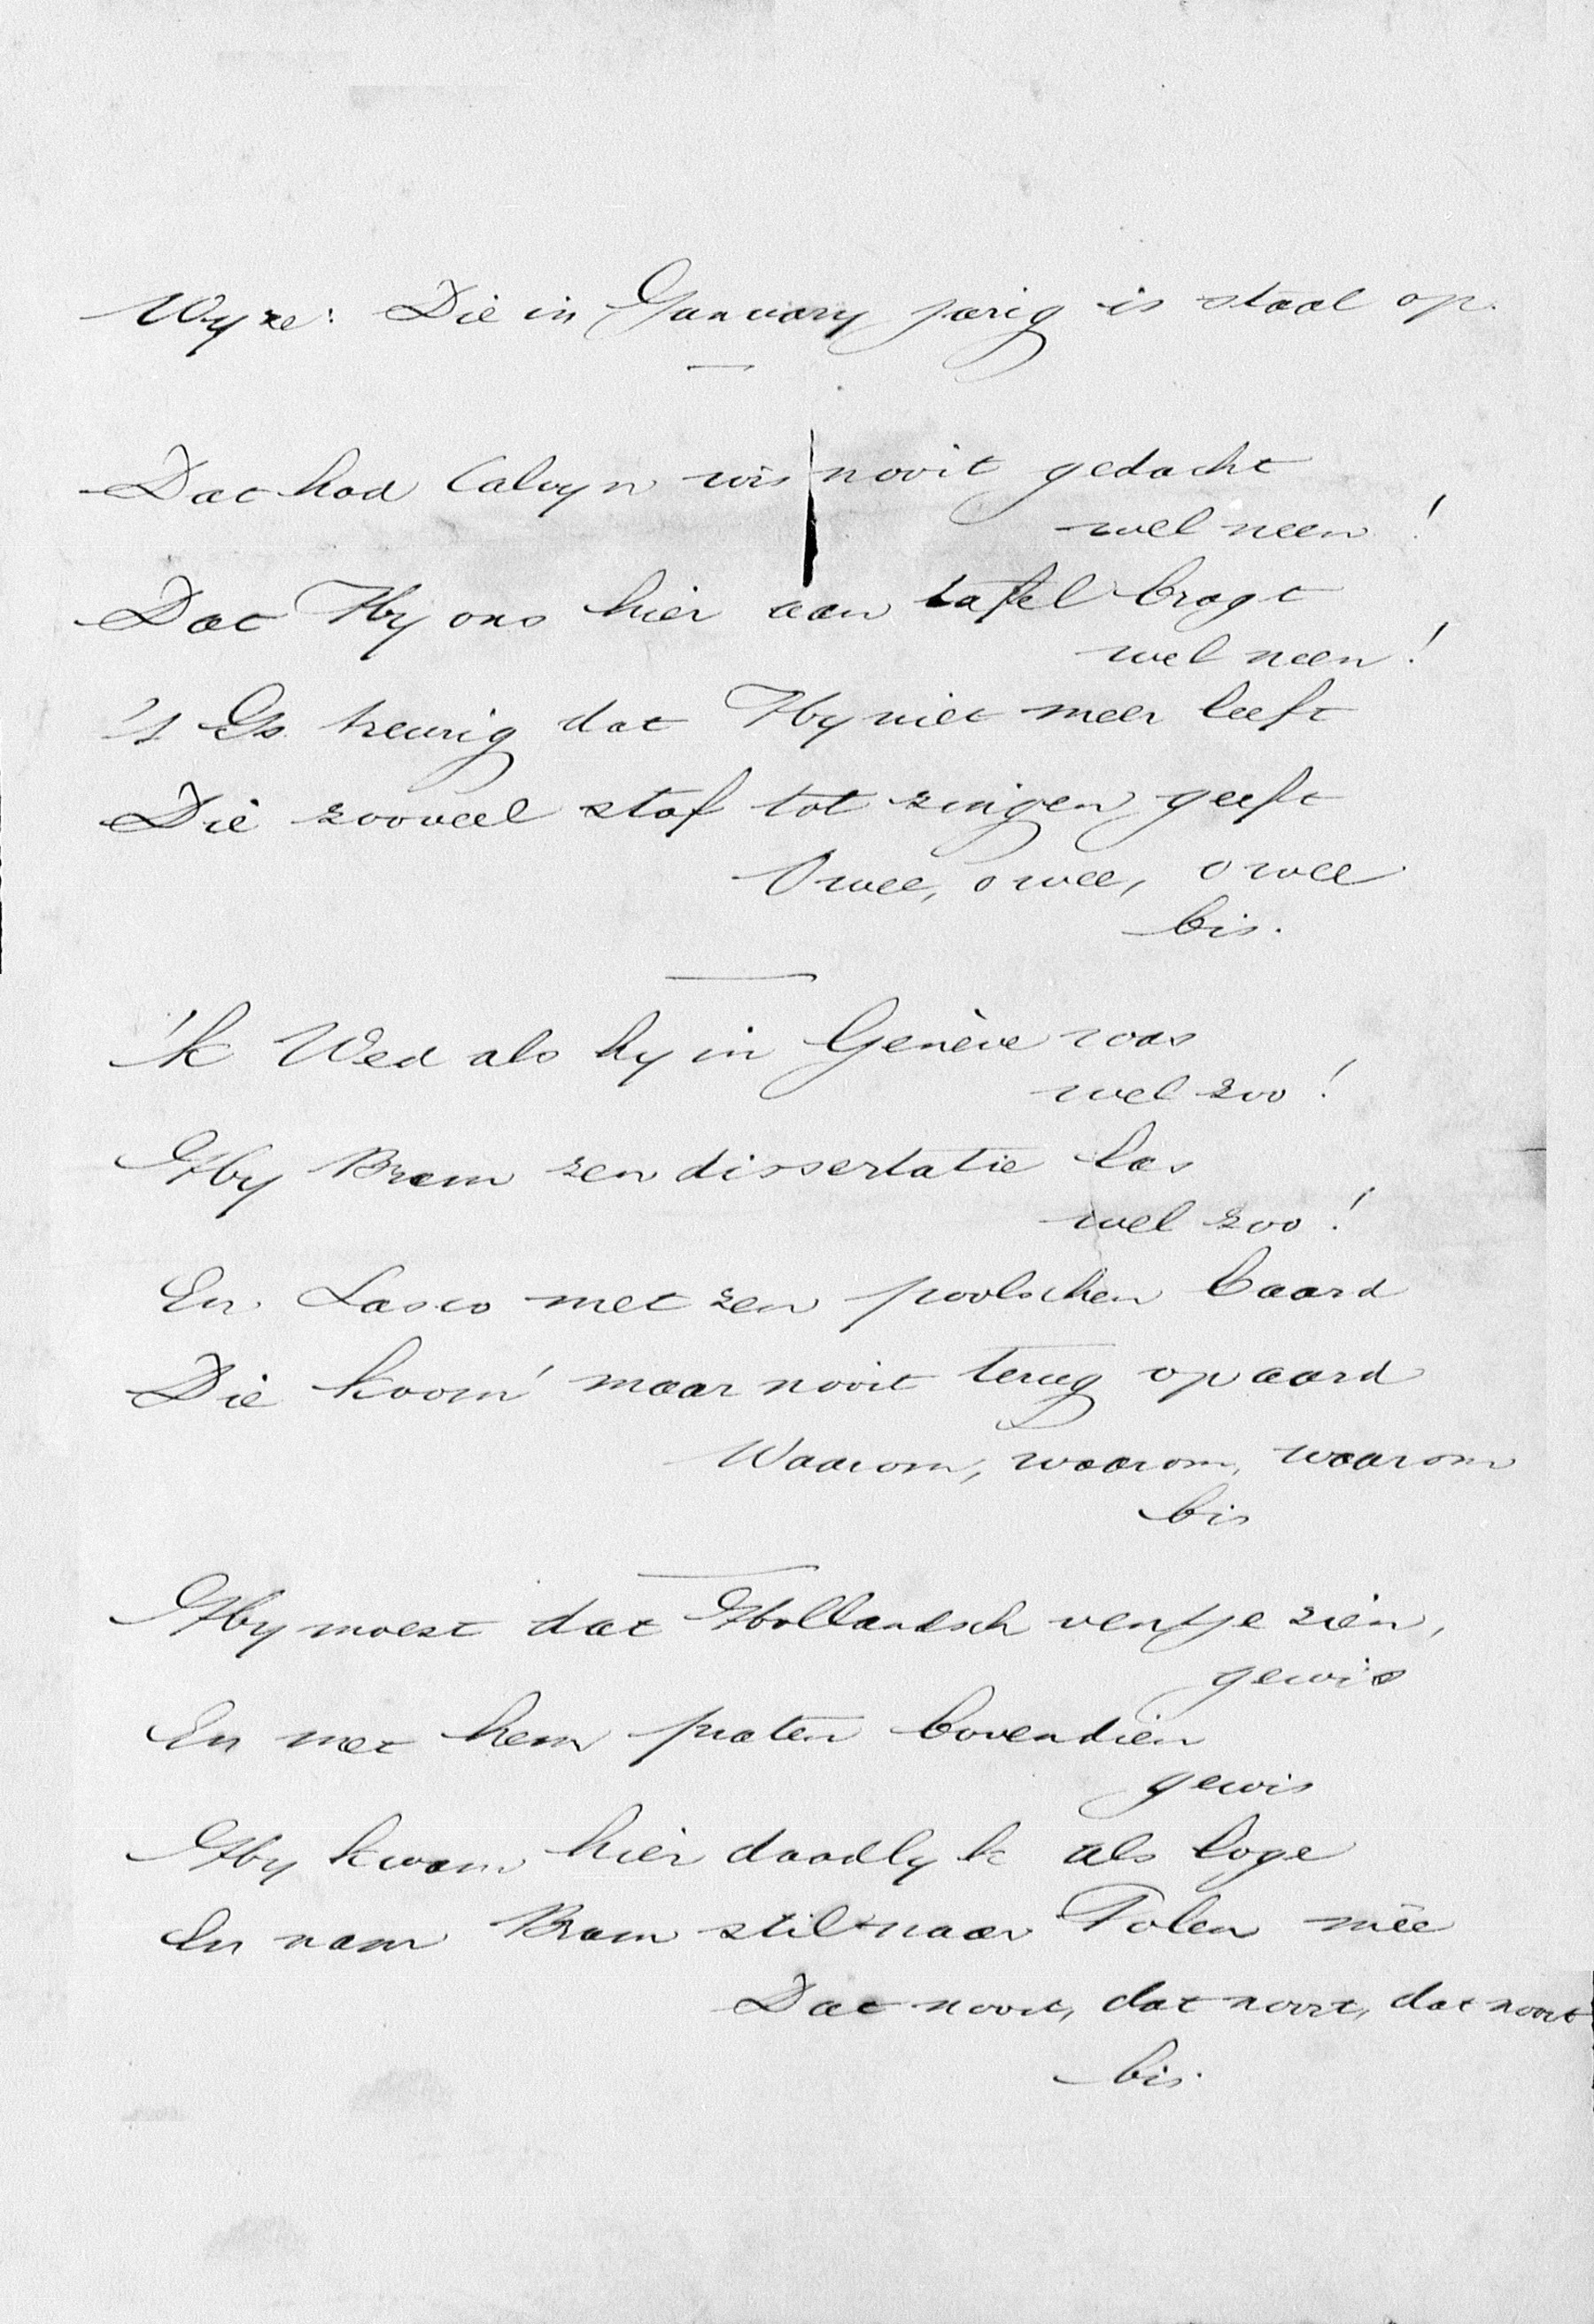 Wyze: Die in January jarig is staal op.
Dat had Calvyn wis nooit gedacht
wel neen!
Dat Hy ons hier aan tafel bragt
wel neen!
's Is treurig dat Hy niet meer leeft
Die zooveel stof tot zingen geeft
O wee, o wee, o wee
bis.
'k Wed als hy in Genève was
wel zoo!
Hy Bram zen dissertatie las
wel zoo!
En Lasco met zen poolschen baard
Die koom' maar nooit terug op aard
Waarom, waarom, waarom
bis
Hy moest dat Hollandsch ventje zien,
gewis
En met hem praten bovendien
gewis
Hy kwam hier daadlyk als loge
En nam Bram stil naar Polen mêe
Dat nooit, dat nooit, dat nooit
bis.